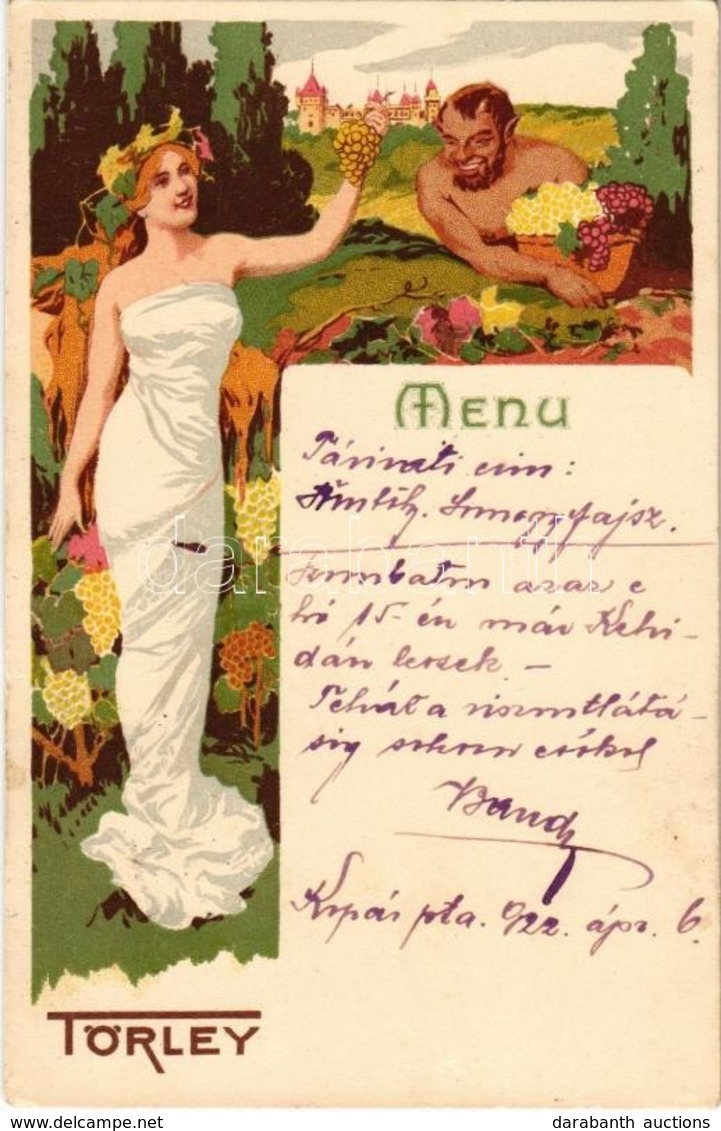 Menu
Távirati cim:
Somogyfajsz.
Szombaton azaz e
hó 15-én már Kehi-
dán leszek -
Tehát a viszontlátá-
sig sokszor csókol
Bandy
pta. 922. ápr. 6.
TÖRLEY
darabanth
© darabanth auctions